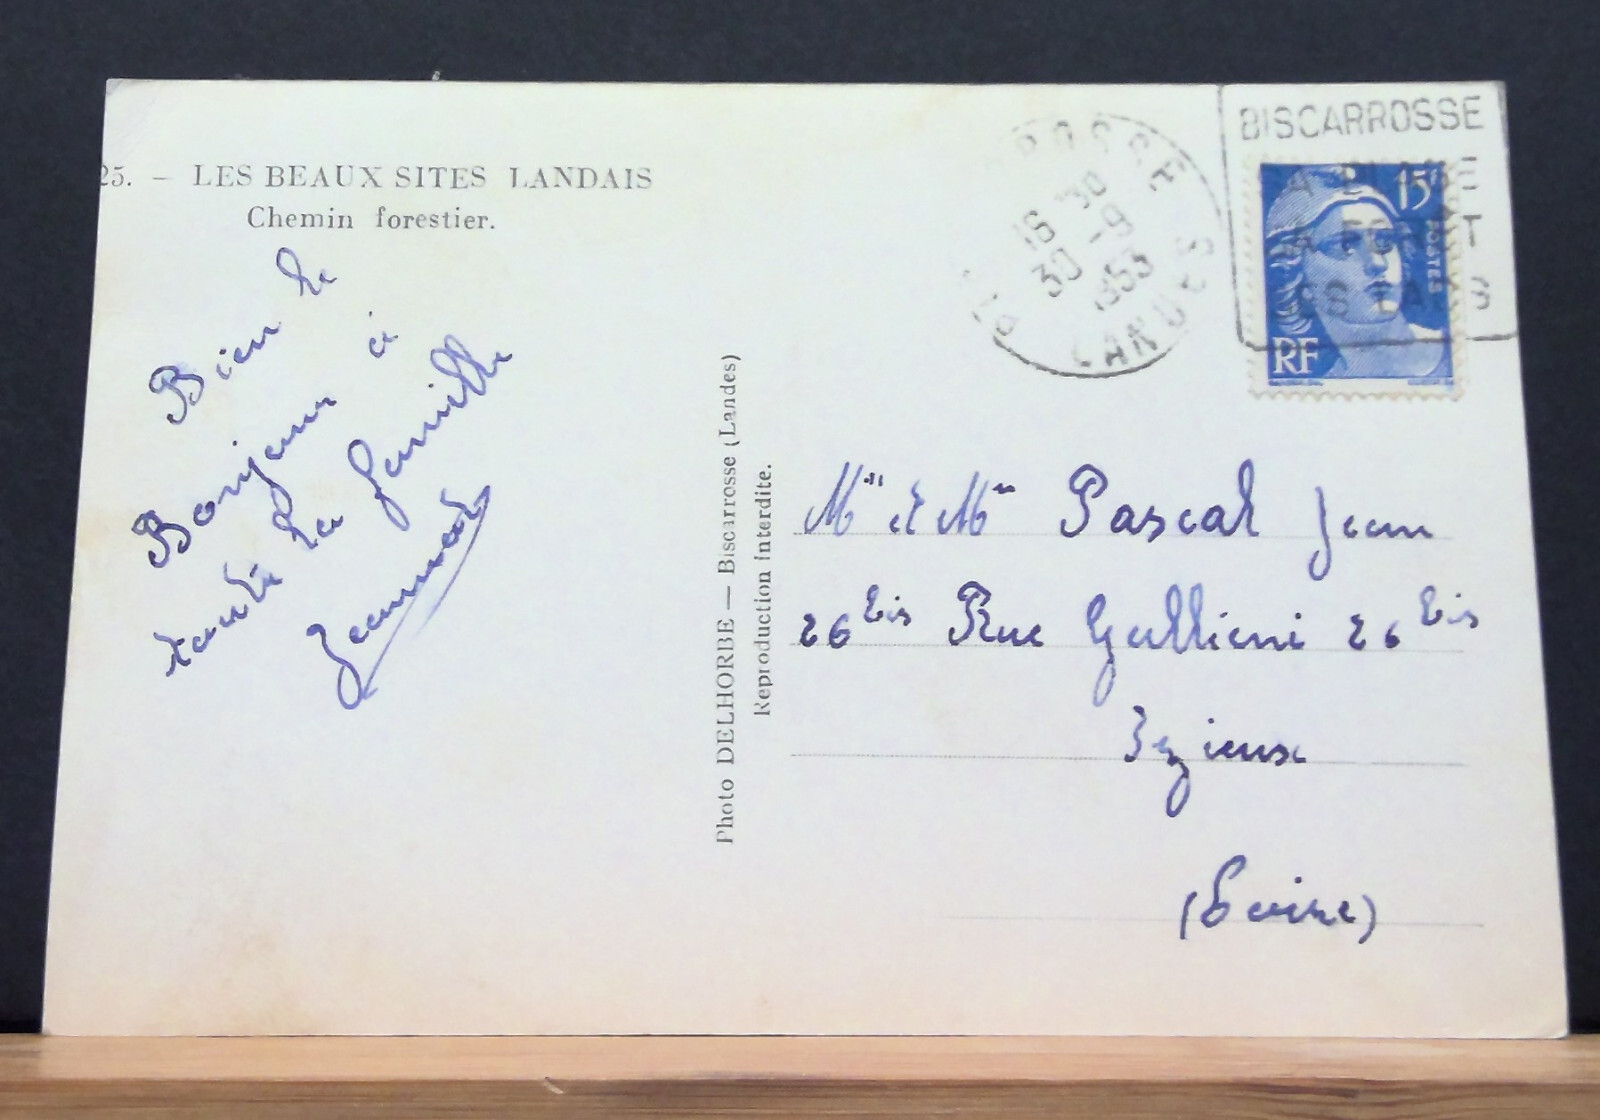 25. — LES BEAUX SITES LANDAIS
Chemin forestier.
Bien le
Bonjour à
toute la famille
Jeannot
Photo DELHORBE — Biscarrosse (Landes)
Reproduction interdite.
16 30
30 -9
1953
LANDES
BISCARROSSE
15F
POSTES
RF
Mr et Mme Pascal Jean
26 bis Rue Gallieni 26 bis
Izieux
(Loire)